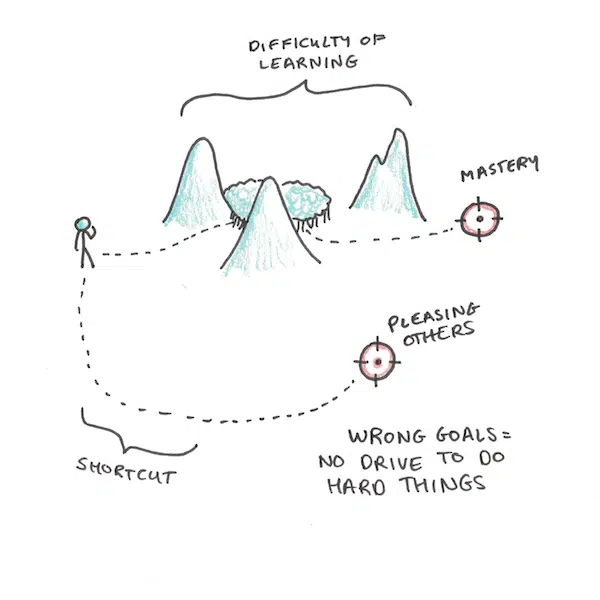 DIFFICULTY OF
LEARNING
MASTERY
PLEASING
OTHERS
SHORTCUT
WRONG GOALS =
NO DRIVE TO DO
HARD THINGS